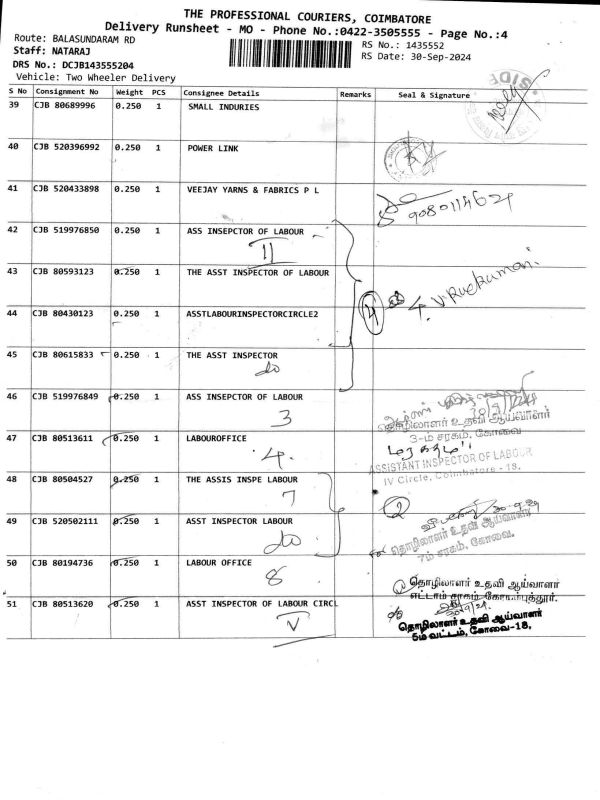 THE PROFESSIONAL COURIERS, COIMBATORE
Delivery Runsheet - MO - Phone No.:0422-3505555 - Page No.:4
Route: BALASUNDARAM RD
RS No.: 1435552
Staff: NATARAJ
RS Date: 30-Sep-2024
DRS No.: DCJB143555204
Vehicle: Two Wheeler Delivery
S No Consignment No Weight PCS Consignee Details Remarks Seal & Signature
39 CJB 80689996 0.250 1 SMALL INDURIES
40 CJB 520396992 0.250 1 POWER LINK
41 CJB 520433898 0.250 1 VEEJAY YARNS & FABRICS P L
42 CJB 519976850 0.250 1 ASS INSEPCTOR OF LABOUR
II
43 CJB 80593123 0.250 1 THE ASST INSPECTOR OF LABOUR
44 CJB 80430123 0.250 1 ASSTLABOURINSPECTORCIRCLE2
4
45 CJB 80615833 0.250 1 THE ASST INSPECTOR
do
46 CJB 519976849 0.250 1 ASS INSEPCTOR OF LABOUR
3
தொழிலாளர் உதவி ஆய்வாளர்
3-ம் சரகம், கோவை
47 CJB 80513611 0.250 1 LABOUROFFICE
4.
ASSISTANT INSPECTOR OF LABOUR
IV Circle, Coimbatore - 18.
48 CJB 80504527 0.250 1 THE ASSIS INSPE LABOUR
7
2
49 CJB 520502111 0.250 1 ASST INSPECTOR LABOUR
do
தொழிலாளர் உதவி ஆய்வாளர்
7ம் சரகம், கோவை.
50 CJB 80194736 0.250 1 LABOUR OFFICE
8
தொழிலாளர் உதவி ஆய்வாளர்
எட்டாம் சரகம் கோயம்புத்தூர்.
51 CJB 80513620 0.250 1 ASST INSPECTOR OF LABOUR CIRCL
V
தொழிலாளர் உதவி ஆய்வாளர்
5ம் வட்டம், கோவை-18.